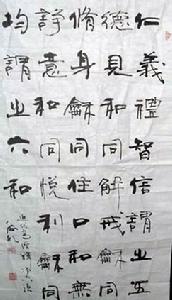 仁義禮智信謂之五
德見和同解戒龢同
脩身龢同住口龢无
諍意和同悅利龢同
均謂之六和